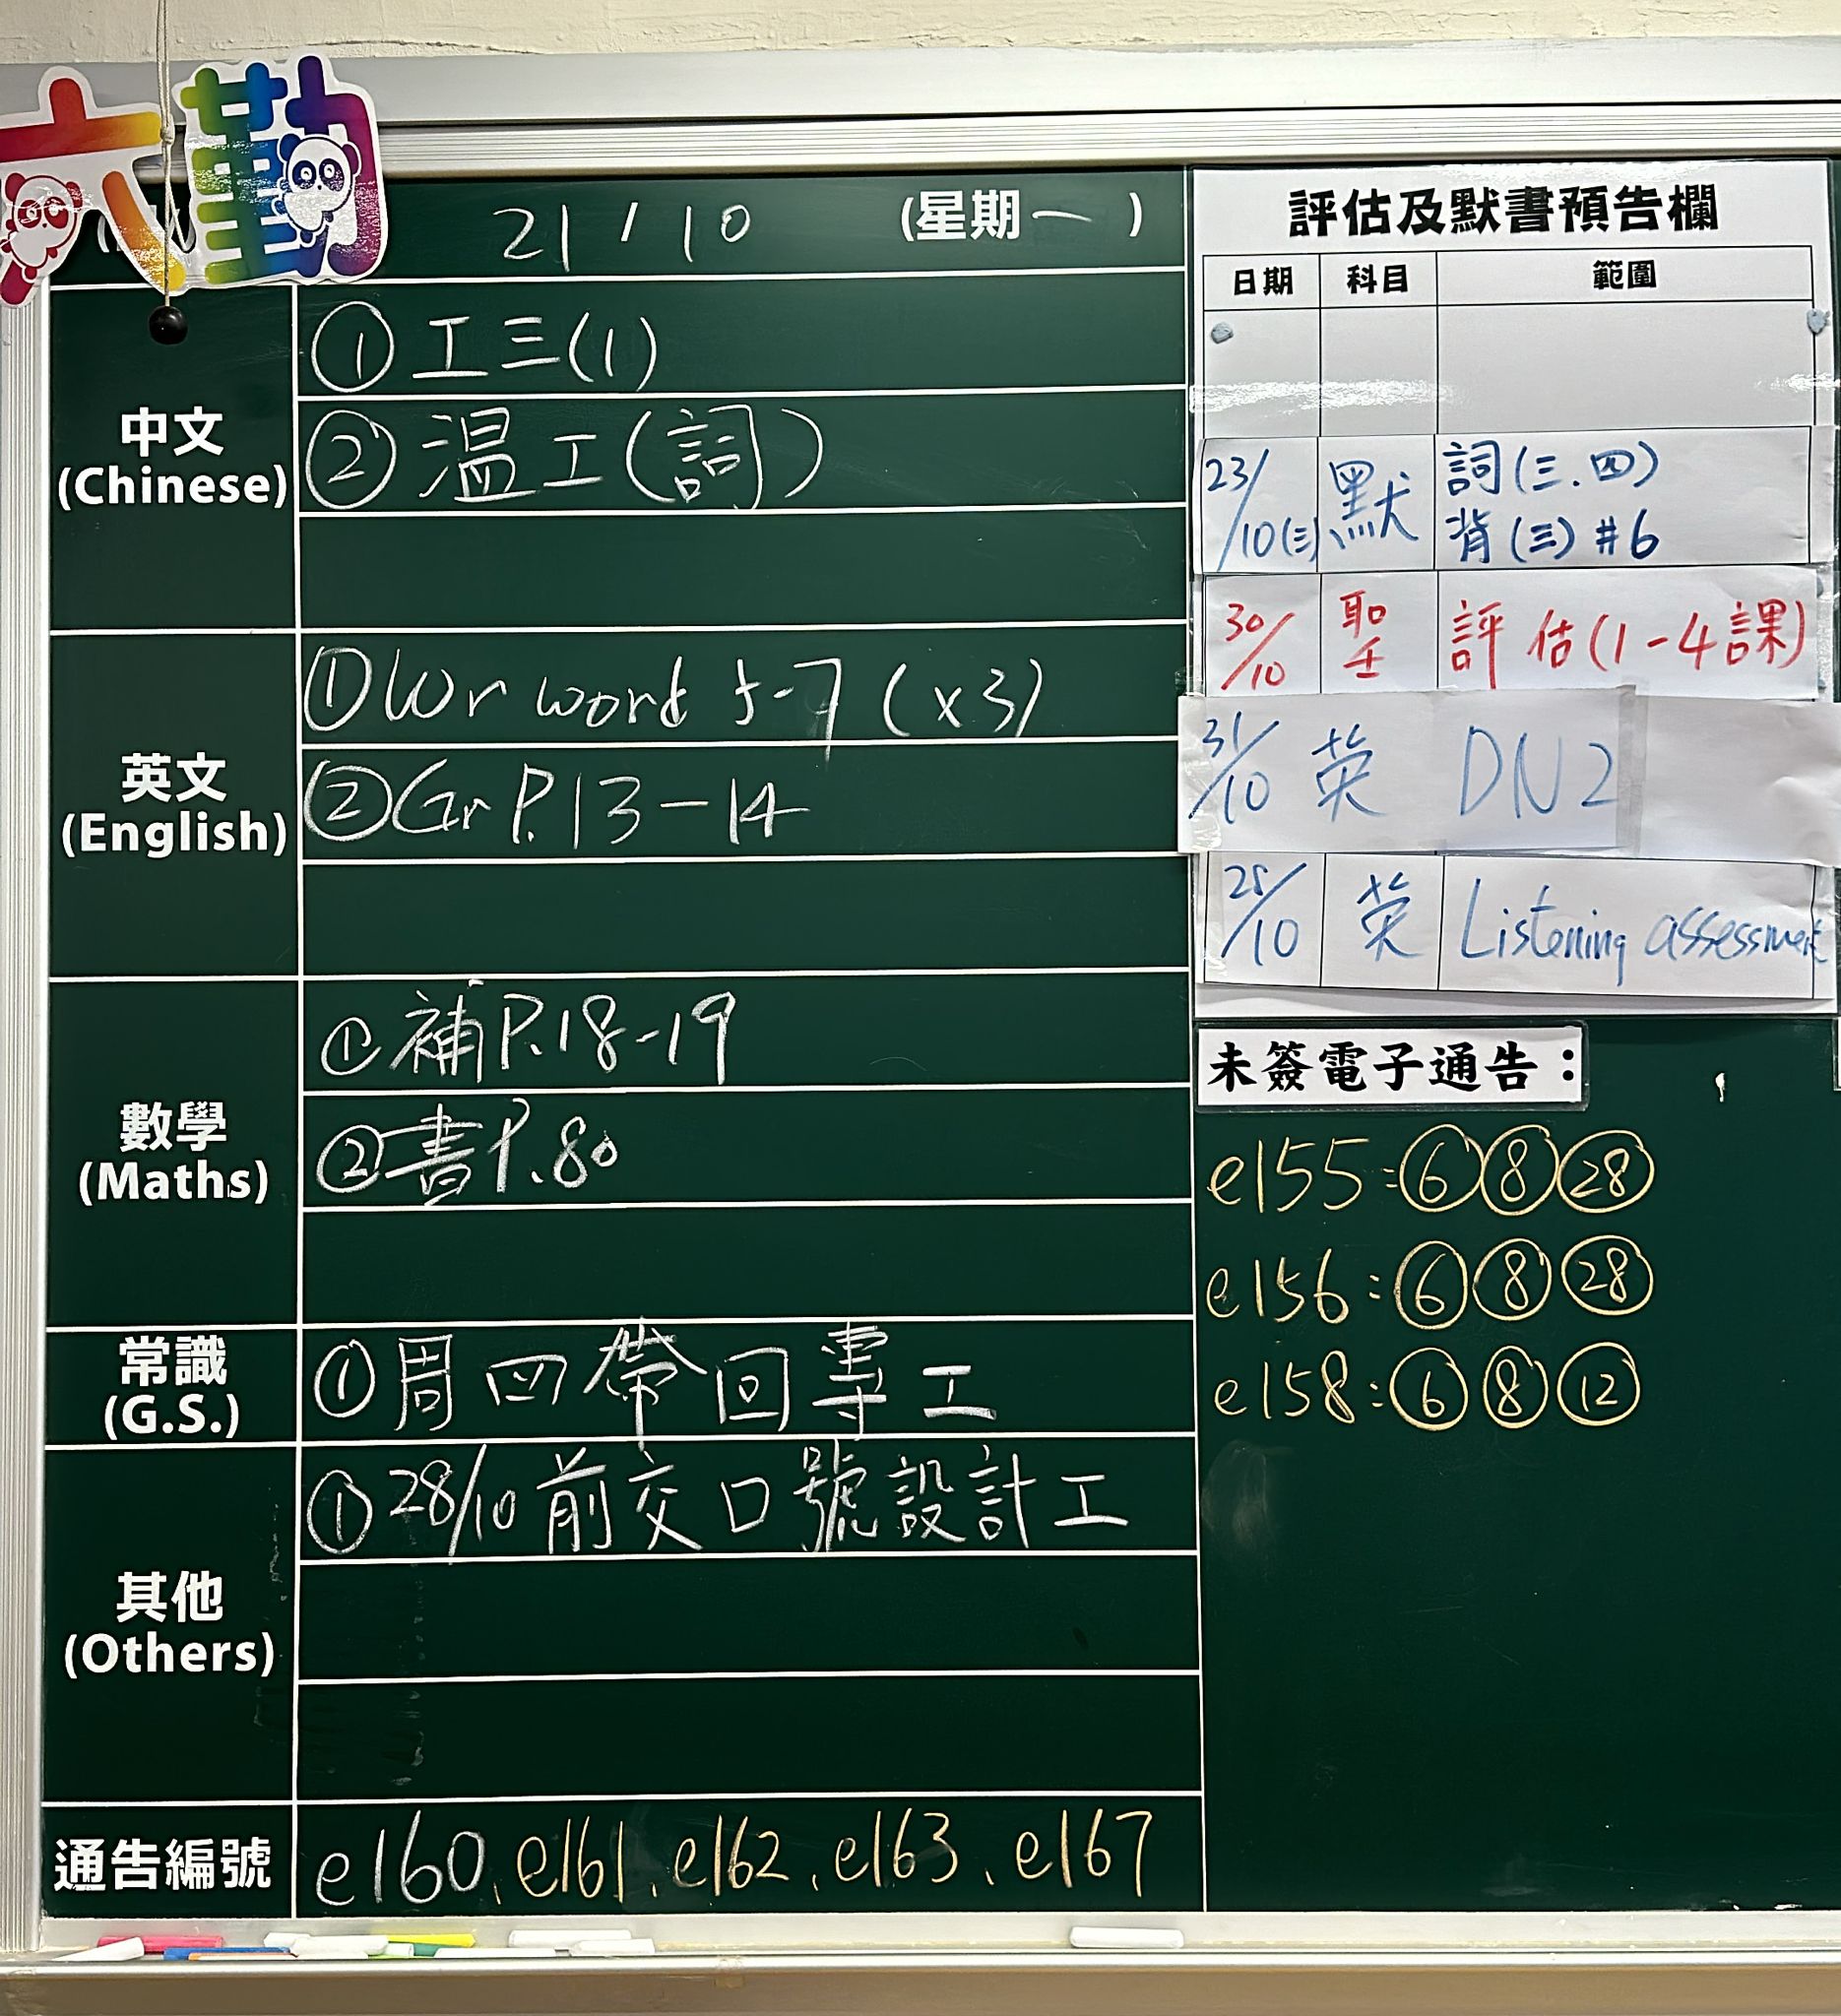 六勤
21/10 (星期一)
中文
(Chinese)
① 工三(1)
② 温工(詞)
英文
(English)
① Wr word 5-7 (x3)
② Gr P.13-14
數學
(Maths)
① 補P.18-19
② 書P.80
常識
(G.S.)
① 周四帶回專工
其他
(Others)
① 28/10前交口號設計工
通告編號
e160、e161、e162、e163、e167
評估及默書預告欄
日期 科目 範圍
23/10(三) 默 詞(三.四)
背(三)#6
30/10 聖 評估(1-4課)
31/10 英 DN2
/10 英 Listening assessment
未簽電子通告：
e155:⑥⑧㉘
e156:⑥⑧㉘
e158:⑥⑧⑫